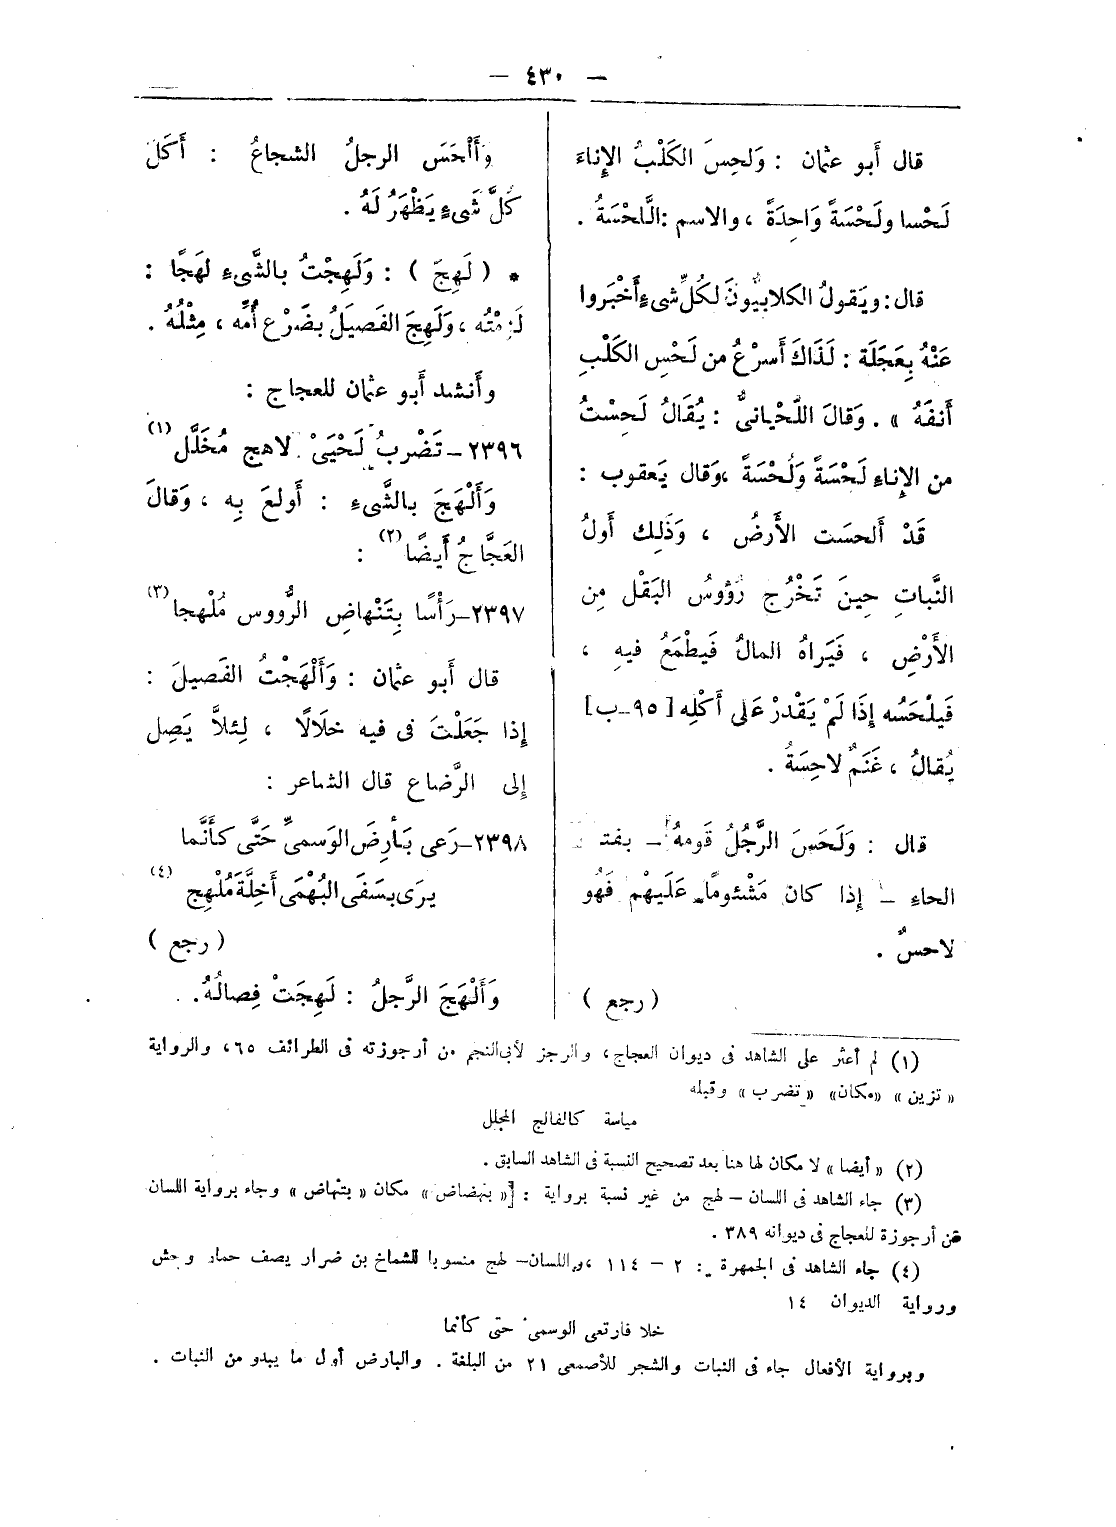 — ٤٣٠ —
قال أبو عثمان : وَلَحِسَ الكَلْبُ الإِناءَ
لَحْسا ولَحْسَةً وَاحِدَةً ، والاسم : اللَّحْسَةُ .
قال : ويَقولُ الكلابيُّونَ لكُلِّ شىءٍ أَخْبَروا
عَنْهُ بِعَجَلَة : لَذَاكَ أَسرْعُ من لَحْسِ الكَلْبِ
أَنفَهُ » . وَقَالَ اللَّحْيانىُّ : يُقَالُ لَحِسْتُ
من الإِناءِ لَحْسَةً وَلُحْسَةً ، وَقال يَعقوب :
قَدْ أَلحسَت الأَرضُ ، وَذَلِك أَولُ
النَّباتِ حِينَ تَخْرُج رُؤوسُ البَقْل مِن
الأَرْضِ ، فَيَراهُ المالُ فَيطْمَعُ فيهِ ،
فَيلْحَسُه إِذَا لَمْ يَقْدرْ عَلى أَكْلِه [ ٩٥ ـ ب ]
يُقالُ ، غَنَمٌ لاحِسَةُ .
قال : وَلَحَسَ الرَّجُلُ قَومهُ ـ بفتح
الحاءِ ـ إِذا كان مَشْئوماً عَلَيهْم فَهُو
لاحسٌ .
( رجع )
وأَلْحَسَ الرجلُ الشجاعُ : أَكَلَ
كُلَّ شَىءٍ يَظْهَرُ لَهُ .
* ( لَهِجَ ) : وَلَهِجْتُ بالشَّىءِ لَهَجًا :
لَزِمْتُه ، وَلَهِجَ الفَصيَلُ بضَرْعِ أُمِّه ، مِثْلُهُ .
وأَنشد أَبو عثمان للعجاج :
٢٣٩٦ ـ تَضْربُ لَحْيَىْ لاهجٍ مُخَلَّل (١)
وَأَلْهَجَ بالشَّىءِ : أَولعَ بِه ، وَقالَ
العَجَّاجُ أَيضًا (٢) :
٢٣٩٧ ـ رَأْسًا بِتَنْهاضِ الرُّووس مُلْهجا (٣)
قال أَبو عثمان : وَأَلْهَجْتُ الفَصيلَ :
إِذا جَعَلْتَ فى فيه خلَالًا ، لِئلاَّ يَصِل
إِلى الرَّضاع قال الشاعر :
٢٣٩٨ ـ رَعى بَأرِضَ الوَسمىِّ حَتَّى كأَنَّما
يرى بسَفَى البُهْمَى أَخِلَّةَ مُلْهِج (٤)
( رجع )
وَأَلْهَجَ الرَّجلُ : لَهِجَتْ فِصالُهُ .
(١) لم أعثر على الشاهد فى ديوان العجاج ، والرجز لأبى النجم من أرجوزته فى الطرائف ٦٥ ، والرواية
« تزين » «مكان» « تضرب » وقبله
مياسة كالفالج المجلل
(٢) « أيضا » لا مكان لها هنا بعد تصحيح النسبة فى الشاهد السابق .
(٣) جاء الشاهد فى اللسان – لهج من غير نسبة برواية : [« بنهضاض » مكان « بتنهاض » وجاء برواية اللسان
من أرجوزة للعجاج فى ديوانه ٣٨٩ .
(٤) جاء الشاهد فى الجمهرة : ٢ – ١١٤ ، واللسان – لهج منسوبا للشماخ بن ضرار يصف حمار وحش
ورواية الديوان ١٤
خلا فارتعى الوسمى حتى كأنما
وبرواية الأفعال جاء فى النبات والشجر للأصمعى ٢١ من البلغة . والبارض أول ما يبدو من النبات .